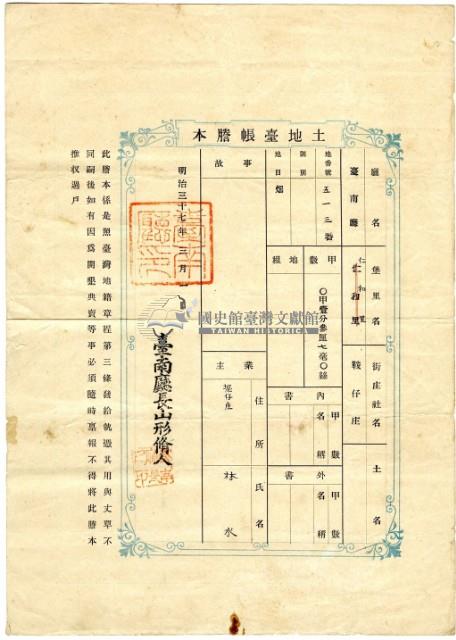 土地臺帳謄本
廳名
臺南廳
堡里名
仁和里
仁和里
街庄社名
鞍仔庄
土名
地番號
五一三番
則別
地目
畑
甲數
〇甲壹分參厘七毫〇絲
地租
內書
甲數
名稱
外書
甲數
名稱
事故
業主
住所
氏名
林水
明治三十七年三月
臺南廳長山形脩人
國史館臺灣文獻館
TAIWAN HISTORICA
此謄本係是照臺灣地籍章程第三條發給執憑其用與丈單不
同嗣後如有因爲開墾典賣等事必須隨時稟報不得將此謄本
推收過戶